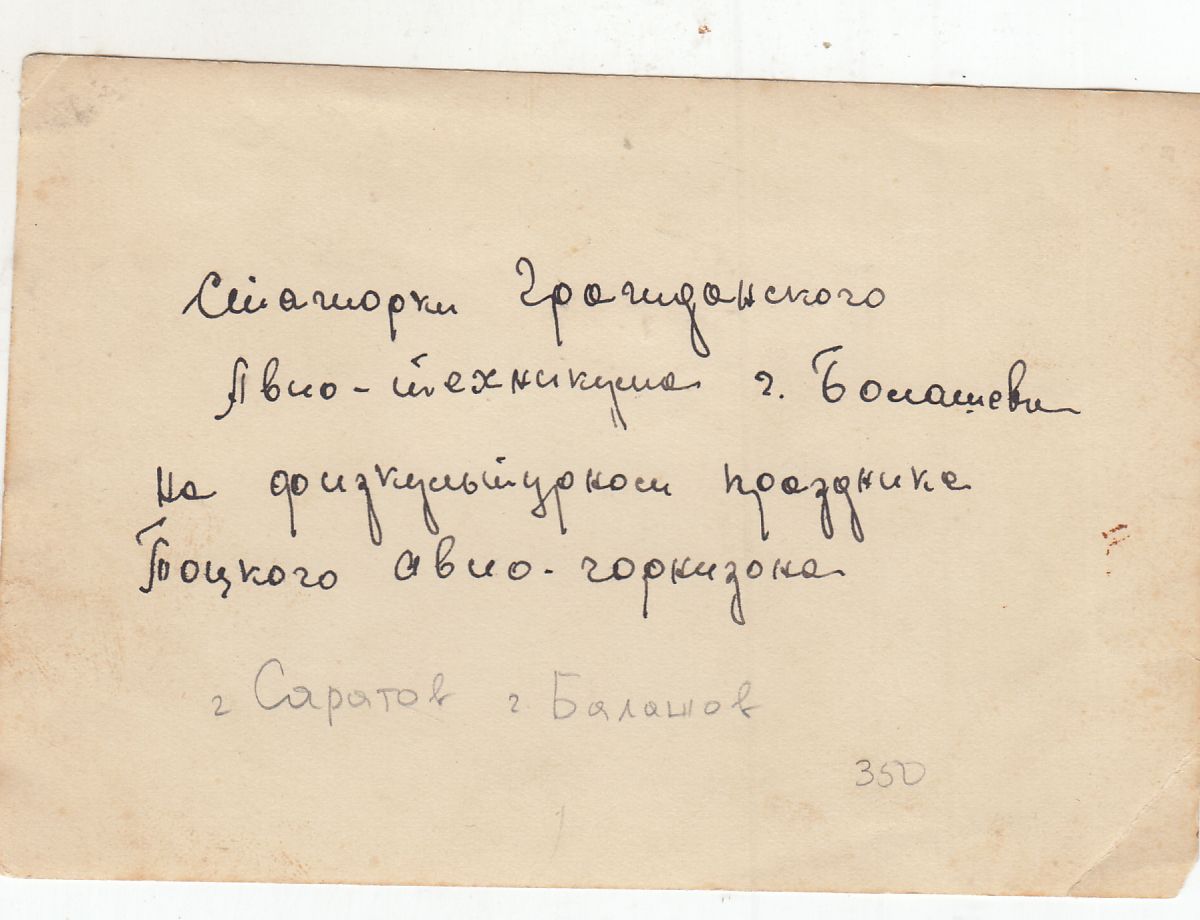 Стажорки Гражданского
Авио-техникума г. Балашева
на физкультурном празднике
Тоцкого авио-горнизона
г Саратов г. Балашов
350